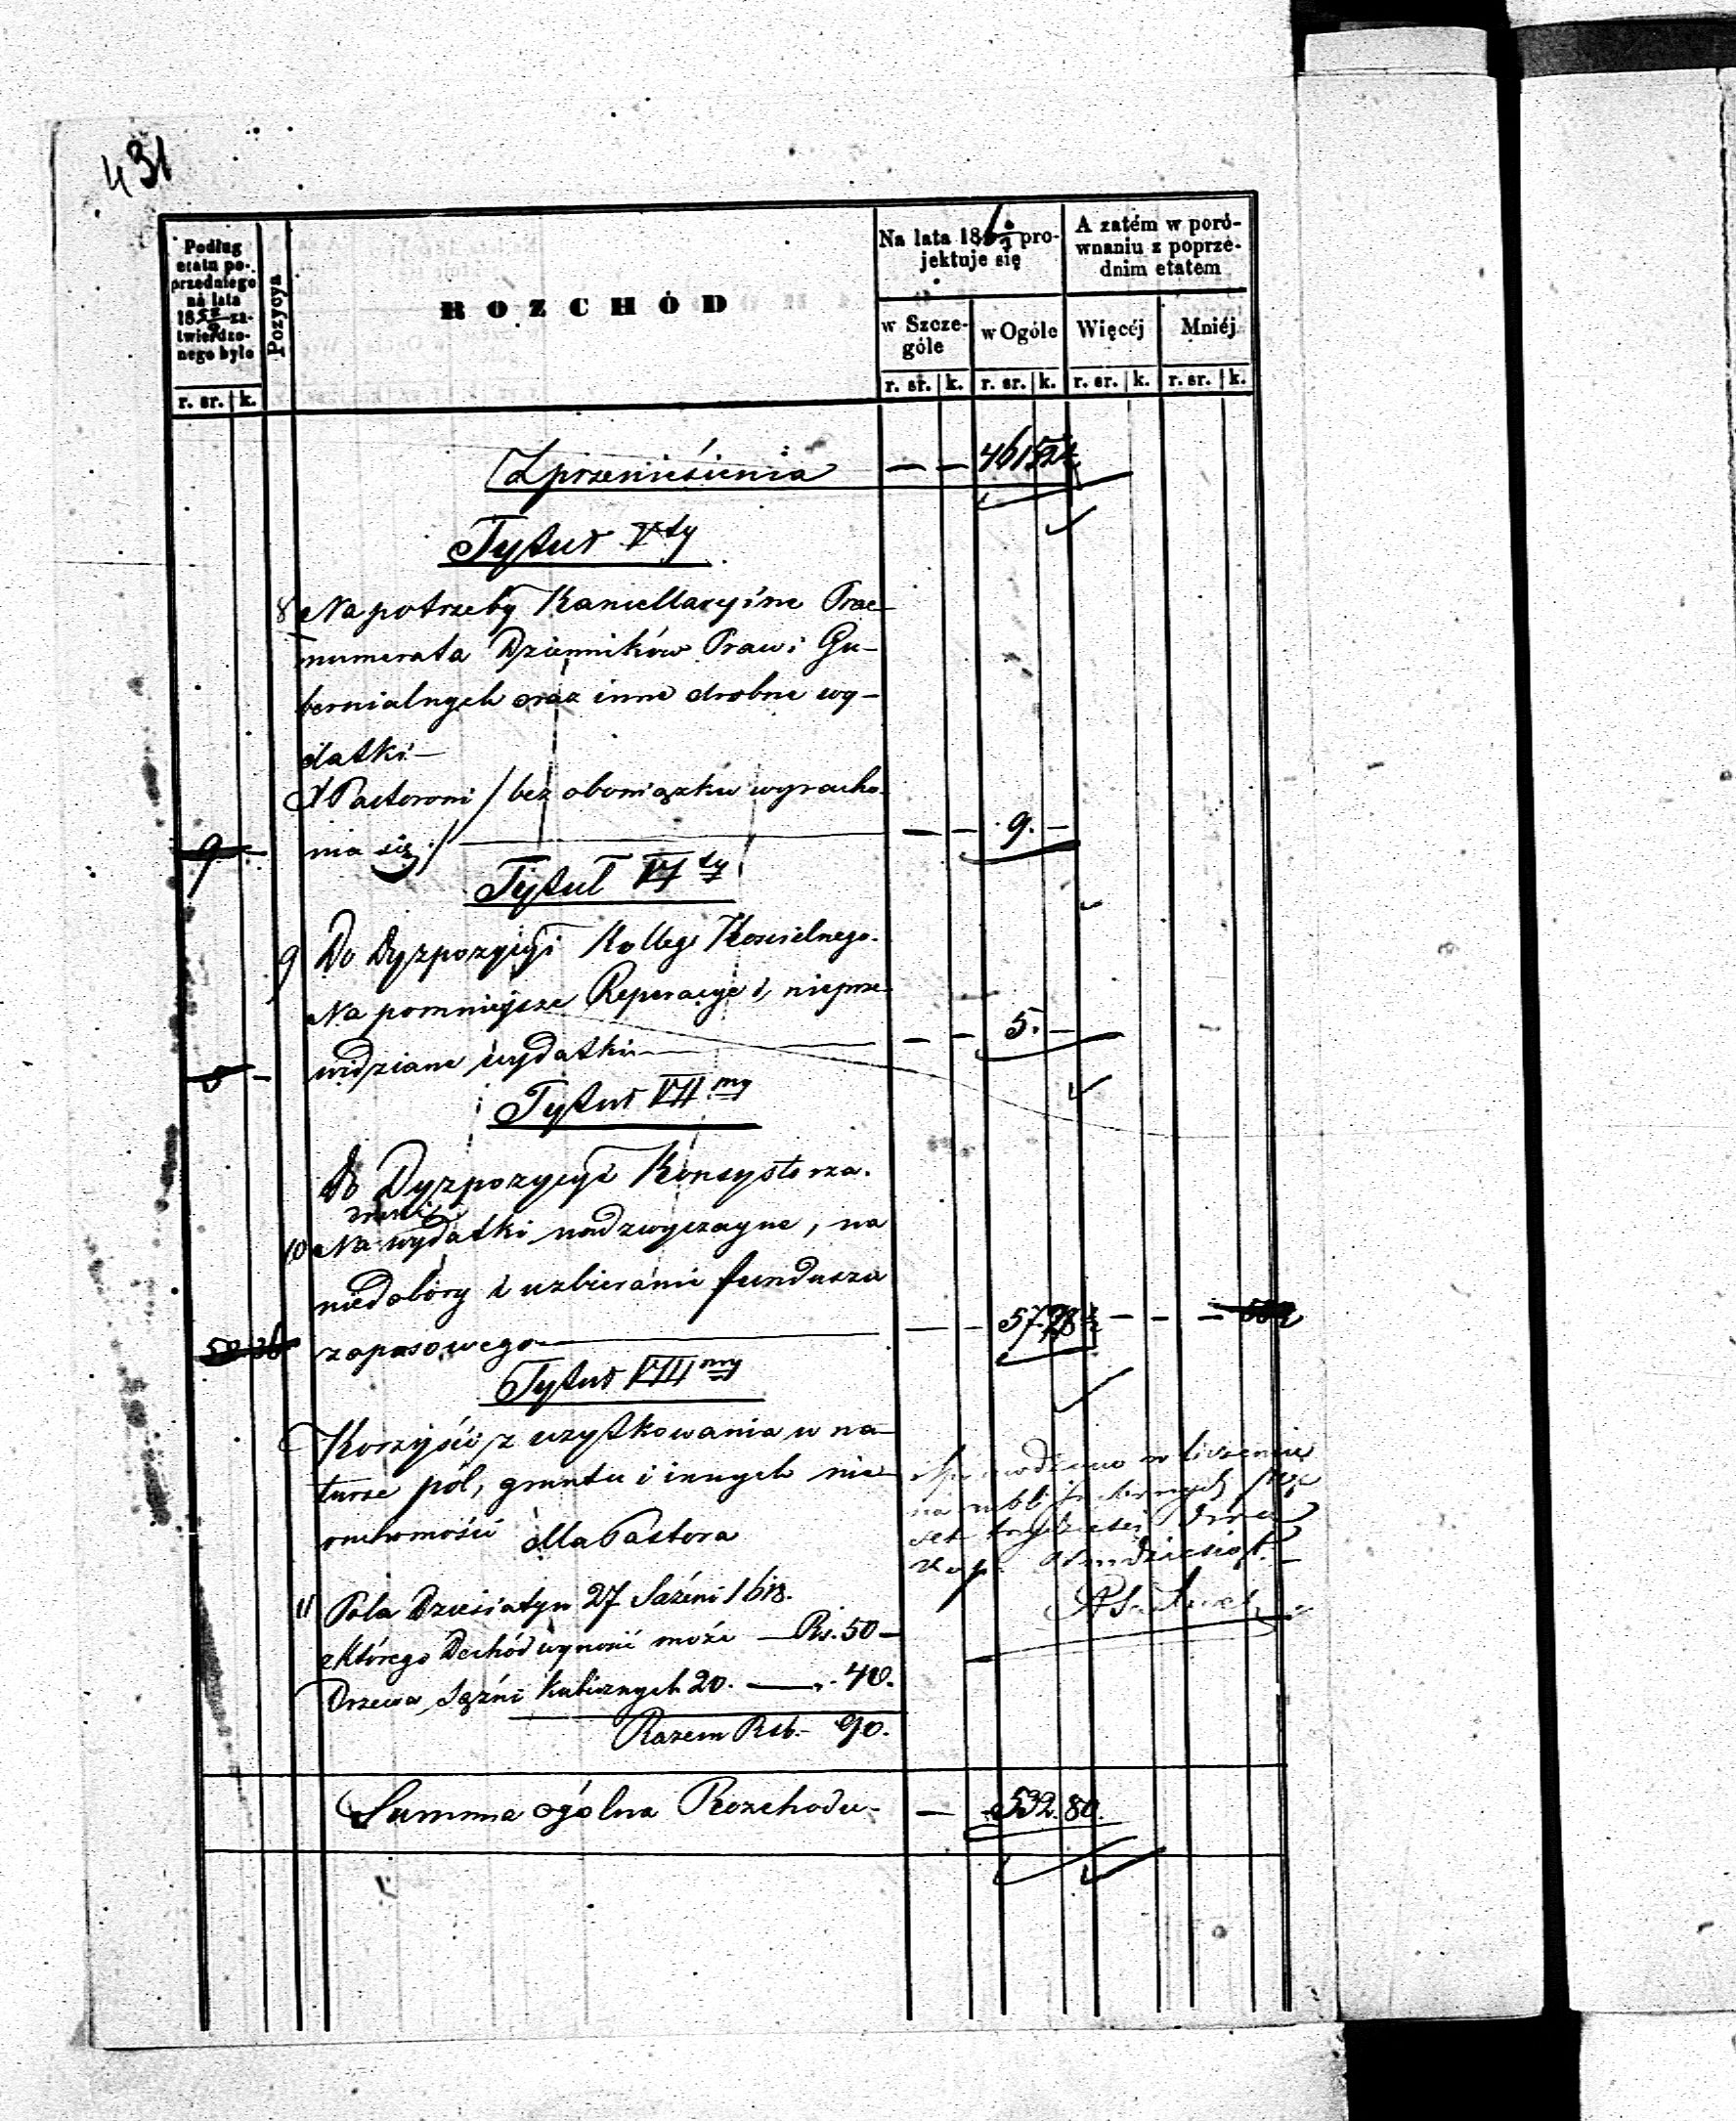 431
Podług
etatu po-
przedniego
na lata
18 za-
twierdzo-
nego było
r. sr. k.
Pozycya
ROZCHÓD
Na lata 186 pro-
jektuje się
w Szcze-
góle
w Ogóle
r. sr. k. r. sr. k.
A zatém w poró-
wnaniu z poprze-
dnim etatem
Więcéj
Mniéj
r. sr. k. r. sr. k.
Z przeniesienia — — 461 52½
Tytuł Vty
8 Na potrzeby Kancellaryine Prae-
numerata Dzienników Praw i Gu-
bernialnych oraz inne drobne wy-
datki —
Pastorowi / bez obowiązku wyracho-
9 — nia się / — — 9. —
Tytuł VI ty
9 Do Dyzpozycyi Kollegi Kościelnego.
Na pomniejsze Reperacye i, nieprze-
5 — widziane wydatki — — — 5. —
Tytuł VII my
Do Dyzpozycyi Konsystorza.
10 Na wydatki nadzwyczayne, na
niedobory i uzbieranie funduszu
58 36 zapasowego — — — 57. 28½ — — —
Tytuł VIII my
Korzyści z użytkowania w na-
turze pól, gruntu i innych nie-
ruchomości dla Pastora
11 Pola Dziesiatyn 27 Sażeni 1618.
którego Dochód wynosić może — Rs. 50 —
Drzewa Sążni kubicznych 20. — „ 40.
Razem Rsb. — 90.
w liczeniu
na rubli
set trzydzieści dwa
kop. ośmdziesiąt. —
Summa ogólna Rozchodu — — 532. 80.